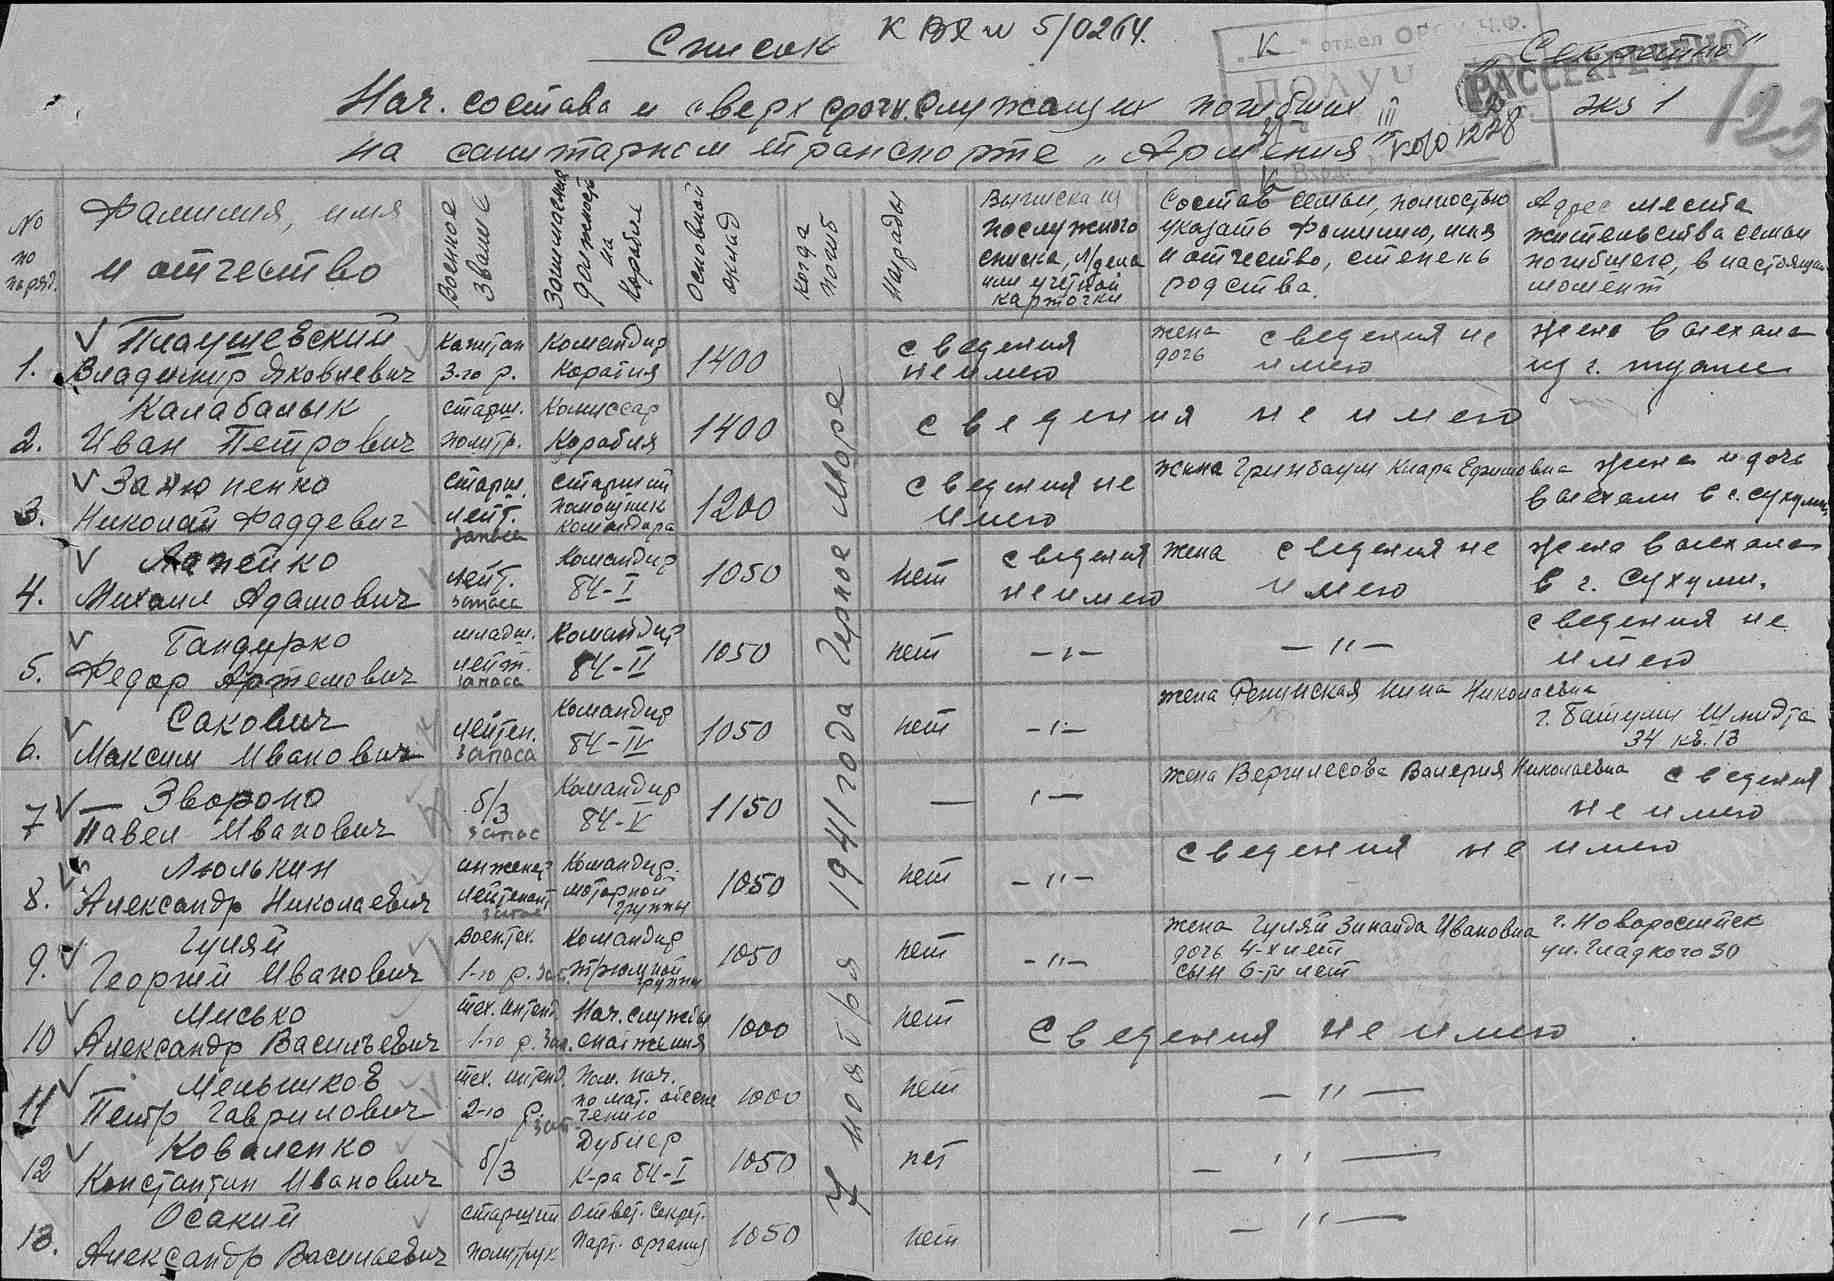 К ВХ № 5/0264.
Список
"Секретно"
РАССЕКРЕЧЕНО
отдел
ПОЛУЧ
экз 1
123
Нач. состава и сверхсрочн. служащих погибших
на санитарном транспорте "Армения"
№ по поряд.
Фамилия, имя и отчество
Военное звание
Занимаемая должность на корабле
Основной оклад
когда погиб
Награды
Выписка из послужного списка, л/дела или учетной карточки
Состав семьи, полностью указать Фамилию, имя и отчество, степень родства.
Адрес места жительства семьи погибшего, в настоящий момент
7 ноября 1941 года Черное Море
1. Плаушевский Владимир Яковлевич
Капитан 3-го р.
Командир Корабля
1400
сведения не имею
жена дочь сведения не имею
жена выехала из г. туапсе
2. Калабалык Иван Петрович
старш. политр.
Комиссар Корабля
1400
сведения не имею
3. Занюпенко Николай Фаддевич
старш. лейт. запаса
старший помощник командира
1200
сведения не имею
жена Гринбаум Клара Ефимовна
жена и дочь выехали в г. сухуми
4. Михаил Адамович
лейт. запаса
Командир БЧ-I
1050
нет
сведения не имею
жена сведения не имею
жена выехала в г. Сухуми.
5. Бандурко Федор Артемович
младш. лейт. запаса
Командир БЧ-II
1050
нет
-"-
-"-
сведения не имею
6. Сакович Максим Иванович
лейтен. запаса
Командир БЧ-IV
1050
нет
-"-
жена Нина Николаевна
г. Батуми Шмидта 34 кв. 13
7 Зворono Павел Иванович
б/з запас
Командир БЧ-V
1150
— "—
жена Валерия Николаевна
сведения не имею
8. Люлькин Александр Николаевич
инженер лейтенант запас
Командир моторной группы
1050
нет
-"-
сведения не имею
9. Гуляй Георгий Иванович
Воен.тех. 1-го р. зап.
Командир трюмной группы
1050
нет
-"-
жена Гуляй Зинаида Ивановна
дочь 4-х лет
сын 6-ти лет
г. Новоросийск
ул. Гладкого 30
10 Мисько Александр Васильевич
тех. интенд. 1-го р. зап.
Нач. службы снабжения
1000
нет
сведения не имею
11 Меньшиков Петр Гаврилович
тех. интенд. 2-го р. зап.
Пом. нач. по мат. обеспечению
1000
нет
— " —
12 Коваленко Константин Иванович
б/з
Дублер К-ра БЧ-I
1050
нет
— " —
13. Осакий Александр Васильевич
старший политрук
Ответ. секрет. парт. организ
1050
нет
— " —